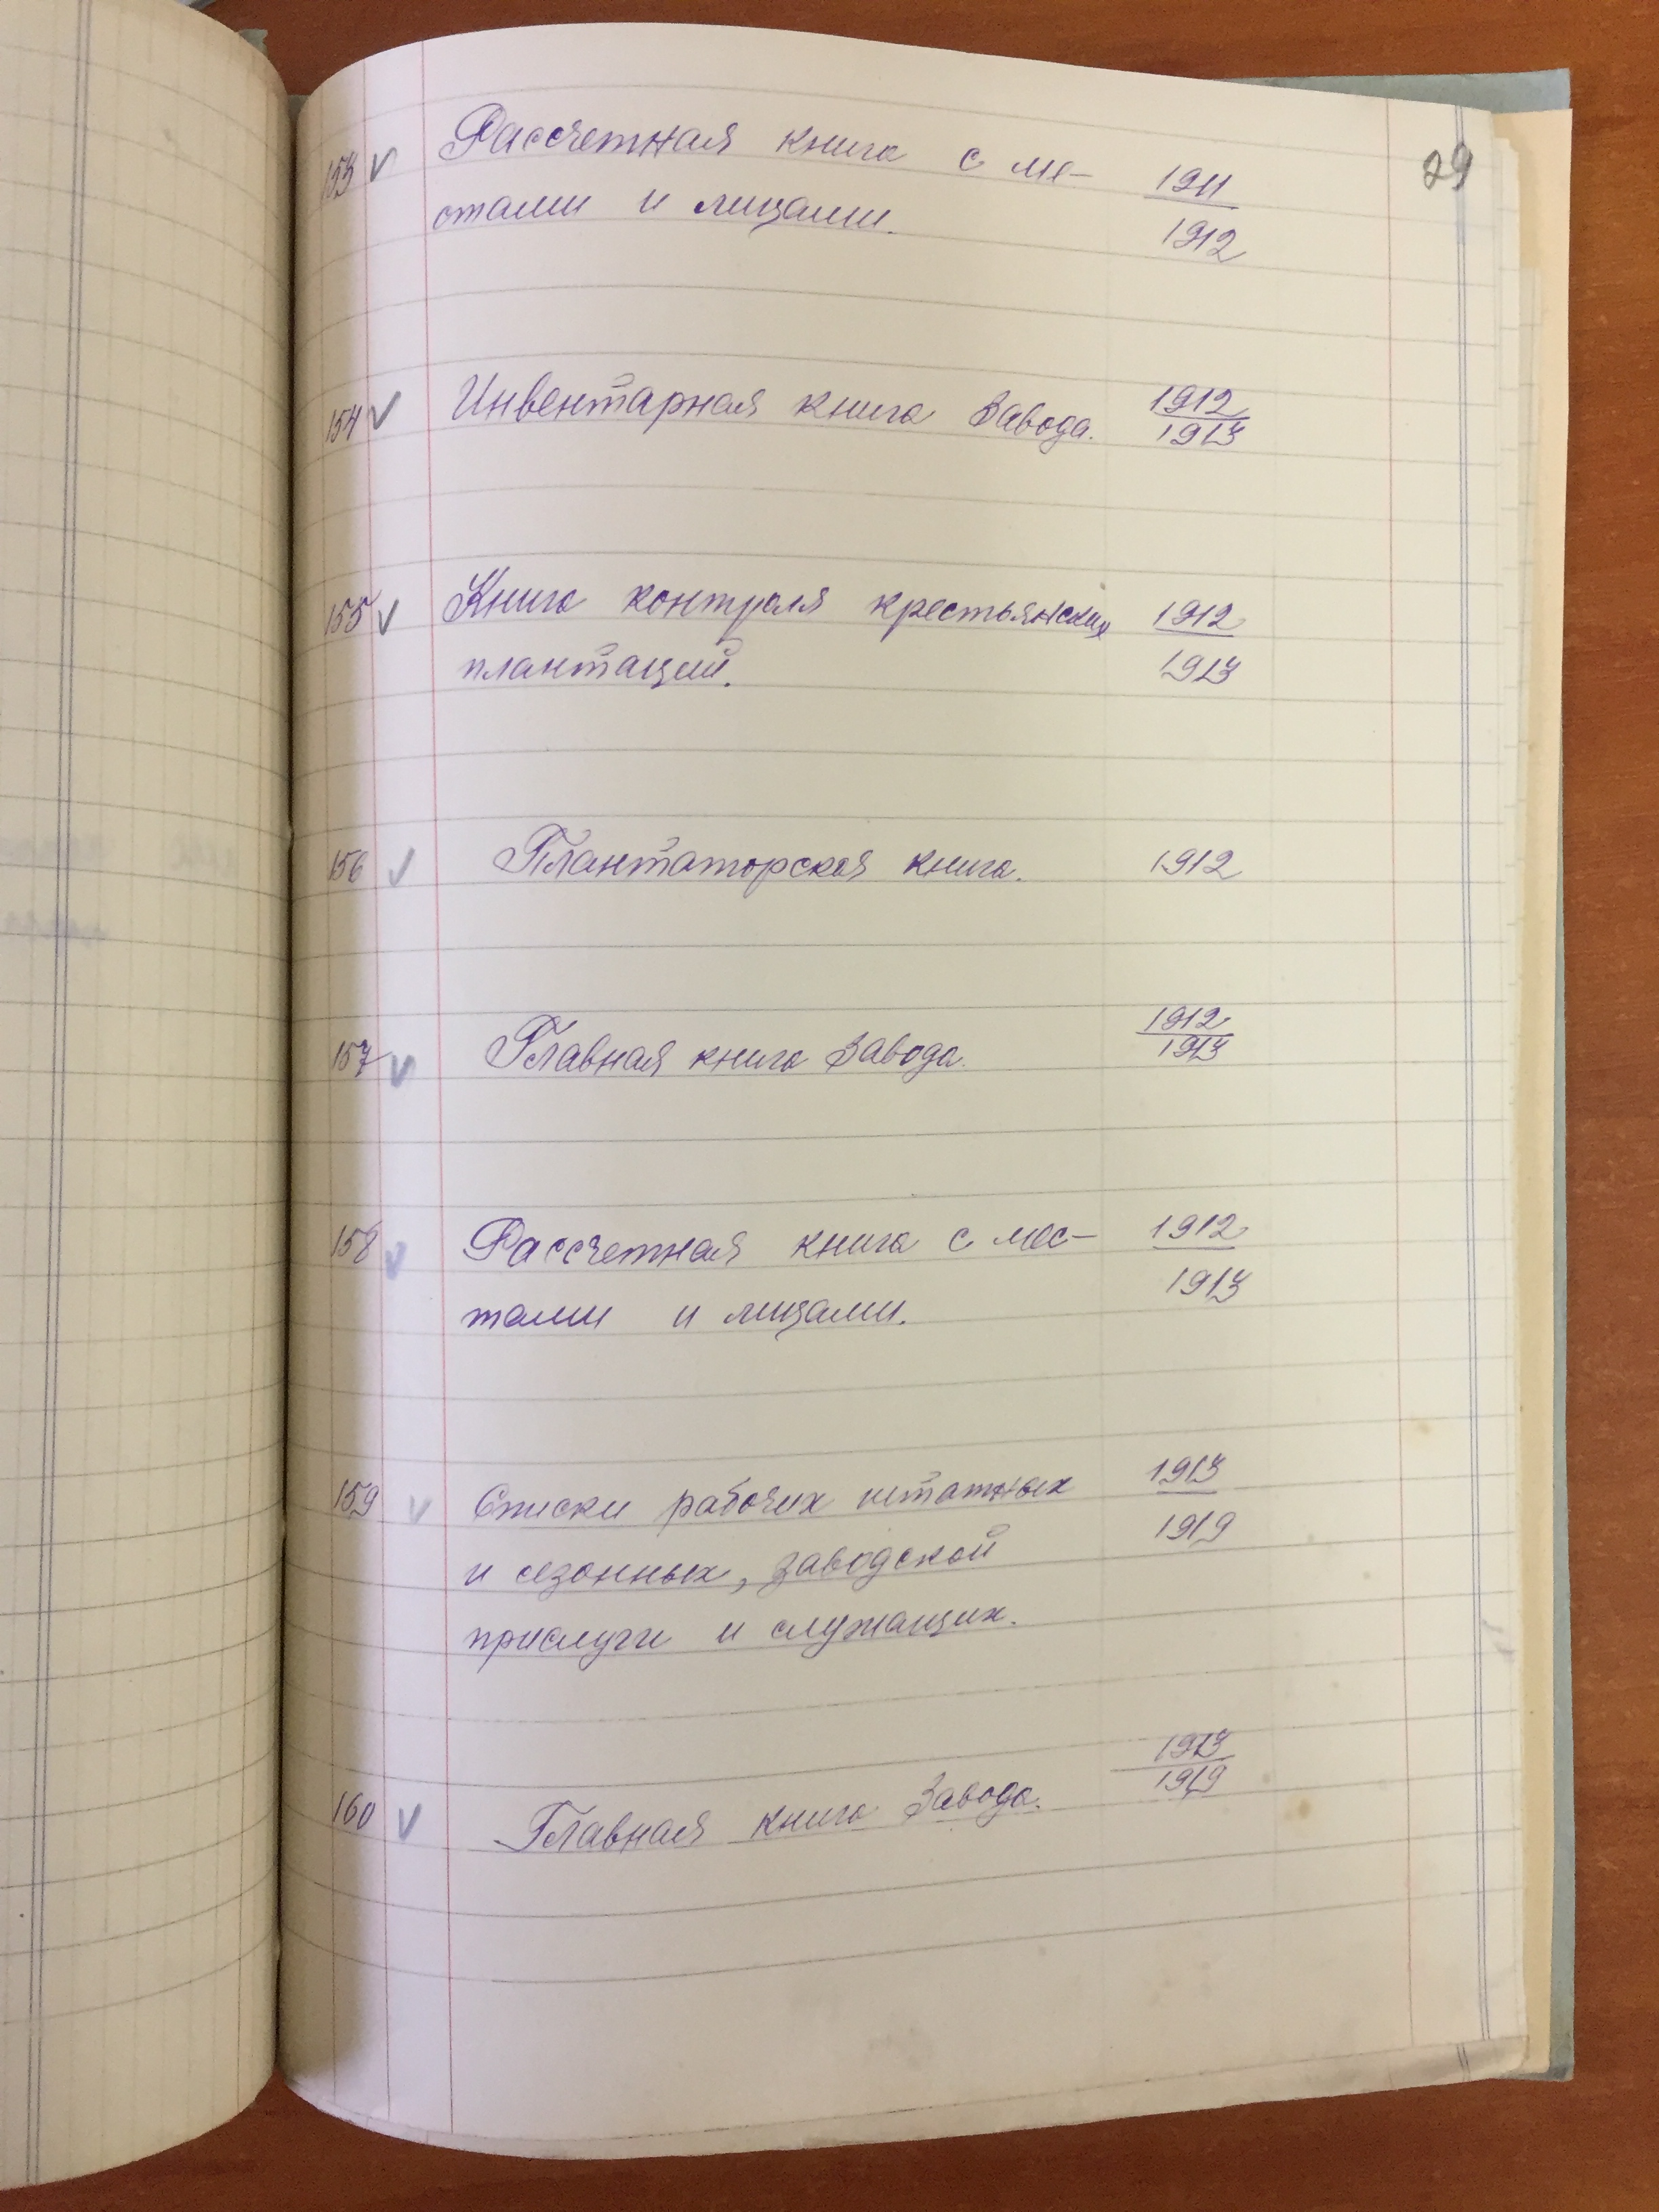 29
153 ✓ Рассчетная книга с ме- 1911
стами и лицами. 1912
154 ✓ Инвентарная книга завода. 1912
1913
155 ✓ Книга контроля крестьянских 1912
плантаций. 1913
156 ✓ Плантаторская книга. 1912
157 ✓ Главная книга завода. 1912
1913
158 ✓ Рассчетная книга с мес- 1912
тами и лицами. 1913
159 ✓ Списки рабочих штатных 1913
и сезонных, заводской 1919
прислуги и служащих.
160 ✓ Главная книга завода. 1913
1919